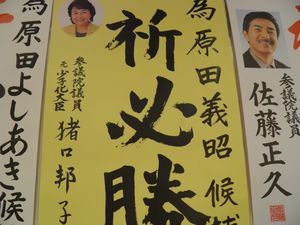 為原田義昭候補
祈必勝
参議院議員
元少子化大臣
猪口邦子
参議院議員
佐藤正久
為原田よしあき候